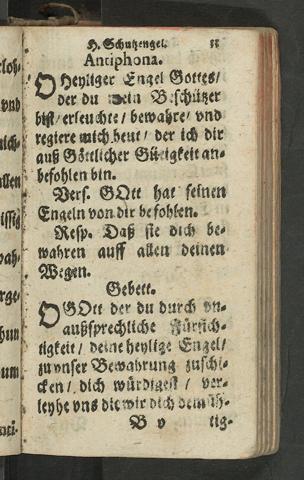 H. Schutzengel.
Antiphona.
O Heyliger Engel Gottes/
der du mein Beschützer
bist/ erleuchte/ bewahre/ vnd
regiere mich heut/ der ich dir
auß Göttlicher Gütigkeit an-
befohlen bin.
Vers. GOtt hat seinen
Engeln von dir befohlen.
Resp. Daß sie dich be-
wahren auff allen deinen
Wegen.
Gebett.
O GOtt der du durch vn-
außsprechliche Fürsich-
tigkeit/ deine heylige Engel/
zu vnser Bewahrung zuschi-
cken/ dich würdigest/ ver-
leyhe vns die wir dich demüh-
B v tig-